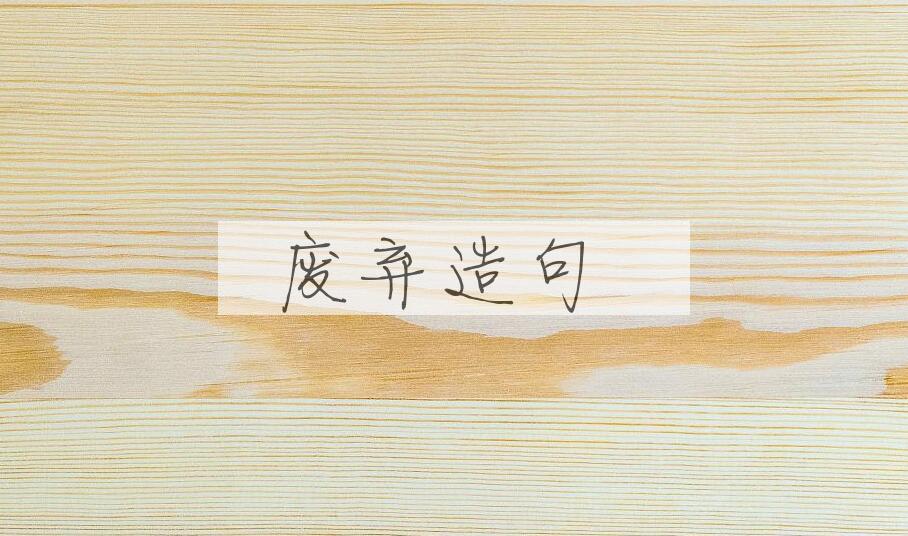 废弃造句